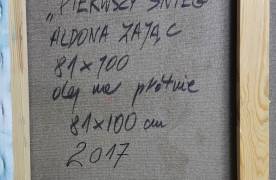 „PIERWSZY ŚNIEG
ALDONA ZAJĄC
81×100
olej na płótnie
81×100 cm
2017